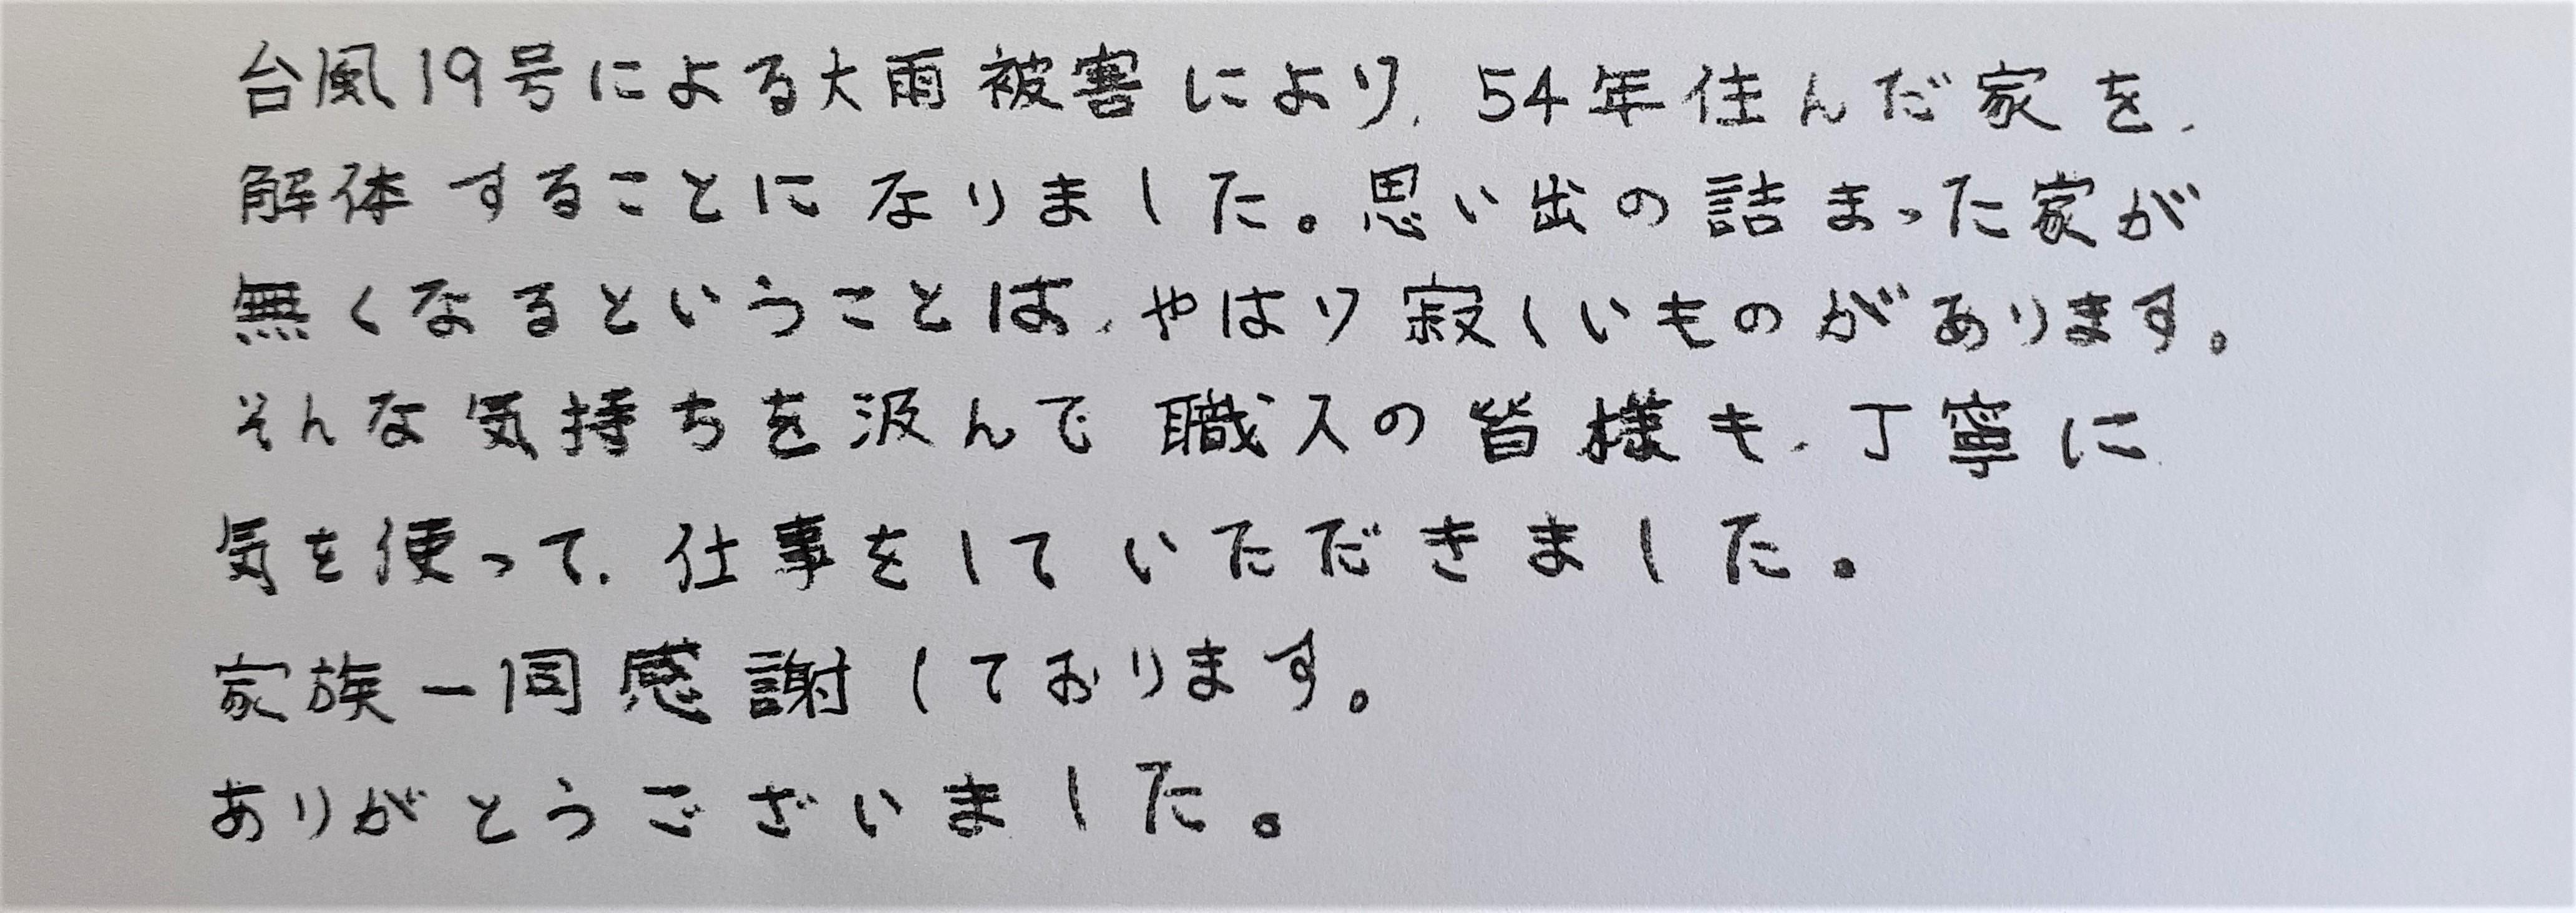 台風19号による大雨被害により、54年住んだ家を、
解体することになりました。思い出の詰まった家が
無くなるということは、やはり寂しいものがあります。
そんな気持ちを汲んで職人の皆様も、丁寧に
気を使って、仕事をしていただきました。
家族一同感謝しております。
ありがとうございました。